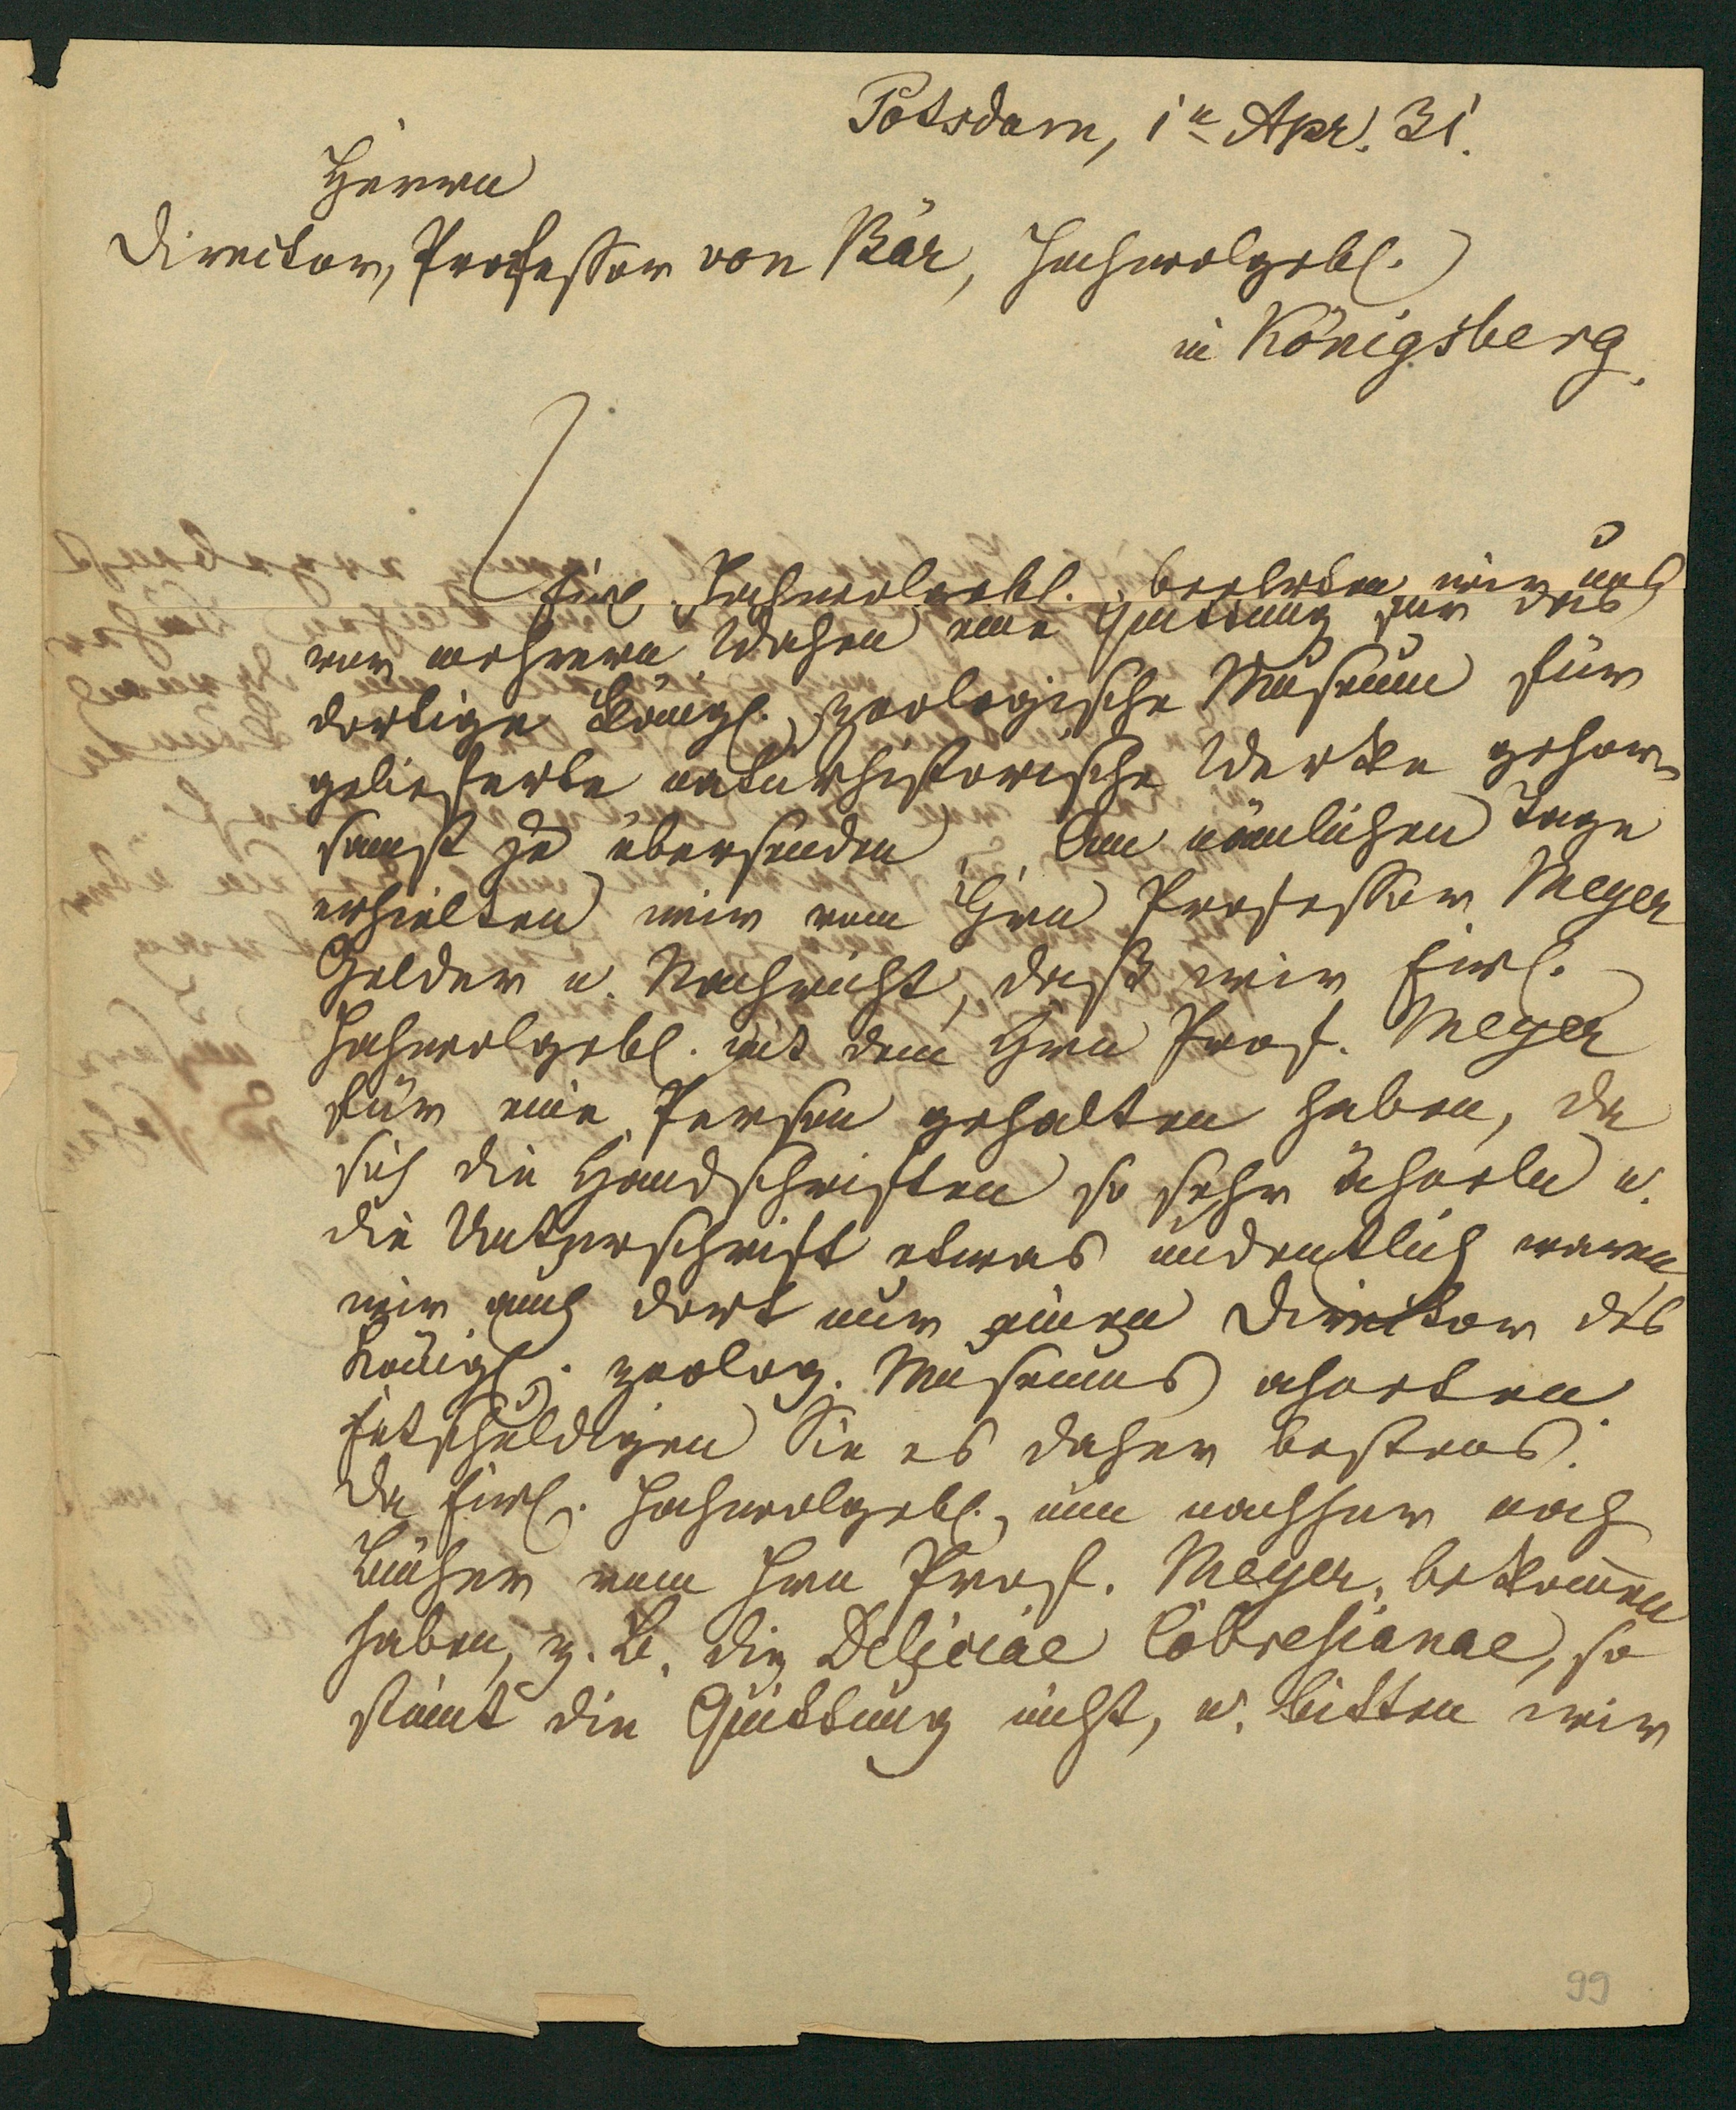 Potsdam, 1n Apr. 31.
Herrn
Director, Professor von Bär, Hochwolgebl.
in Königsberg.
Ewl. Hochwolgebl. beehrten wir uns
vor mehrern Wochen eine Quittung für das
dortige Königl. zoologische Museum für
gelieferte naturhistorische Werke gehor-
samst zu übersenden. Am nämlichen Tage
erhielten wir vom Hrn Professor Meyer
Gelder u. Nachricht, daß wir Ewl.
Hochwolgebl. mit dem Hrn Prof. Meyer
für eine Person gehalten haben, da
sich die Handschriften so sehr ähneln u.
die Unterschrift etwas undeutlich waren
wir auch dort nur einen Director des
Königl. zoolog. Museums ahnten.
Entschuldigen Sie es daher bestens.
Da Ewl. Hochwolgebl. nun nachher noch
Bücher vom Hrn Prof. Meyer bekom̅en
haben, z. B. die Deliciae Cobresianae, so
stim̅t die Quittung nicht, u. bitten wir
99